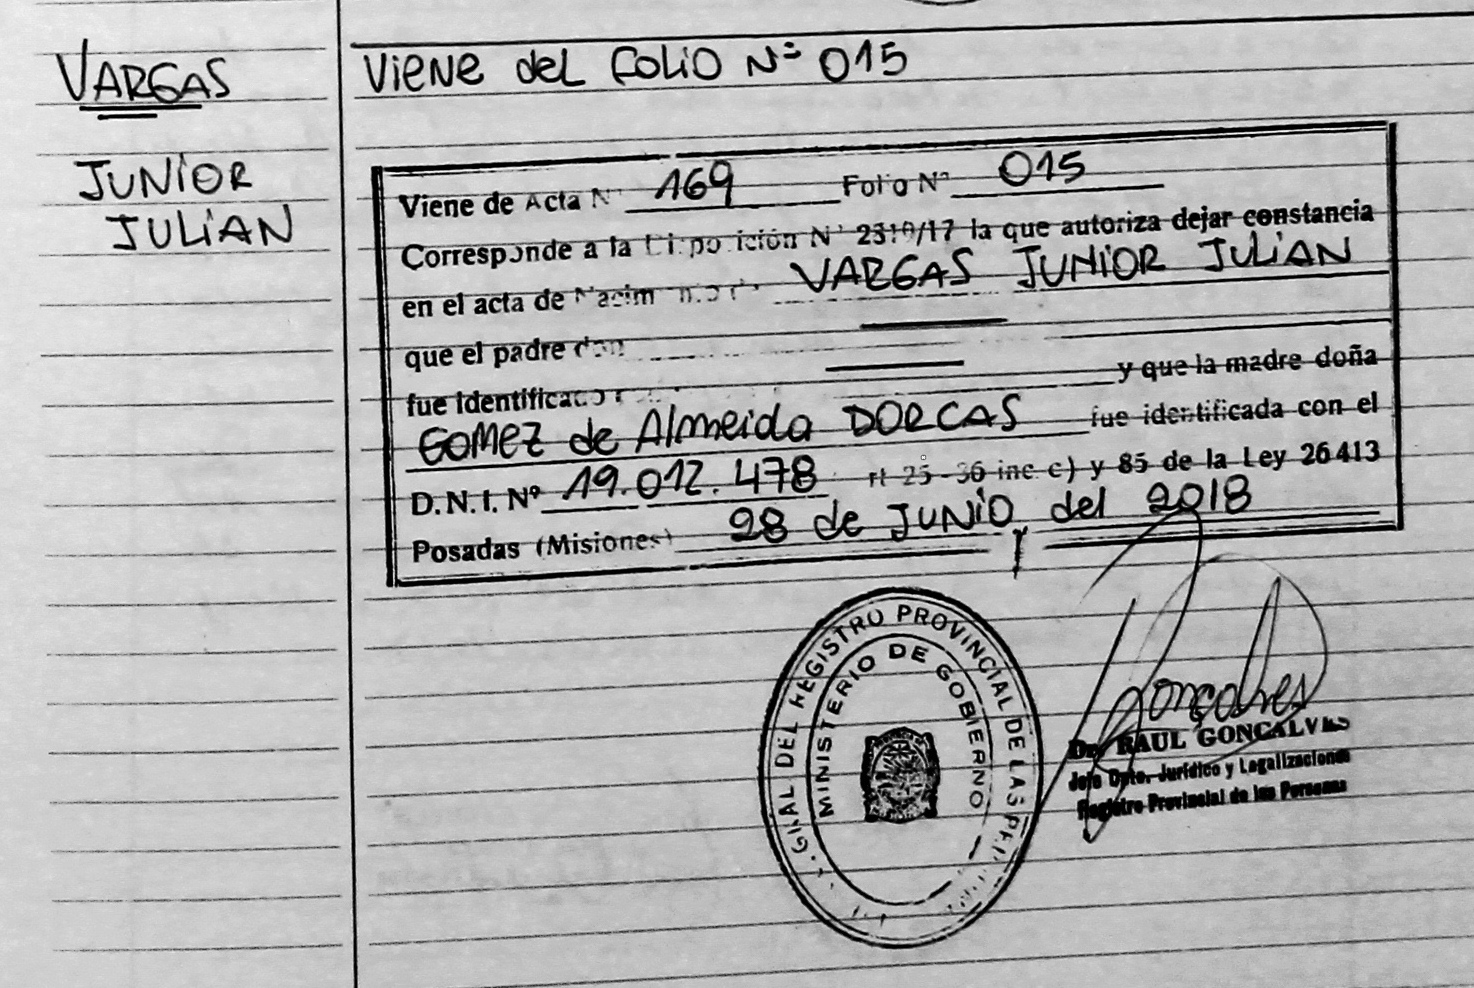 VARGAS
JUNIOR
JULIAN
Viene del Folio Nº 015
Viene de Acta Nº 169 Folio Nº 015
Corresponde a la Disposición Nº 2319/17 la que autoriza dejar constancia
en el acta de VARGAS JUNIOR JULIAN
que el padre don
fue identificado y que la madre doña
GOMEZ de Almeida DORCAS fue identificada con el
D.N.I. Nº 19.012.478 rt 25-36 inc. c) y 85 de la Ley 26413
Posadas (Misiones) 28 de JUNIO del 2018
GRAL DEL REGISTRO PROVINCIAL DE LAS
MINISTERIO DE GOBIERNO
Gonçalves
Dr. RAUL GONCALVES
Jefe Dpto. Jurídico y Legalizaciones
Registro Provincial de las Personas